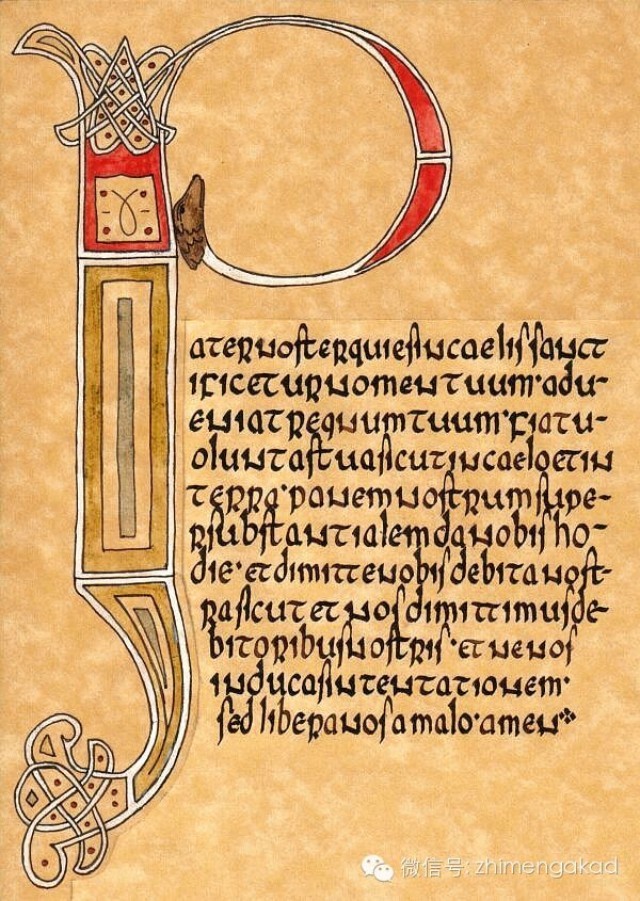 P
aternosterquiesincaelissanct
ificeturnomentuum·adu-
eniatregnumtuum·fiatu-
oluntastuasicutincaeloetin
terra·panemnostrumsupe-
rsubstantialemdanobisho-
die·etdimittenobisdebitanost-
rasicutetnosdimittimusde-
bitoribusnostris·etnenos
inducasintentationem·
sedliberanosamalo·amen
微信号: zhimengakad